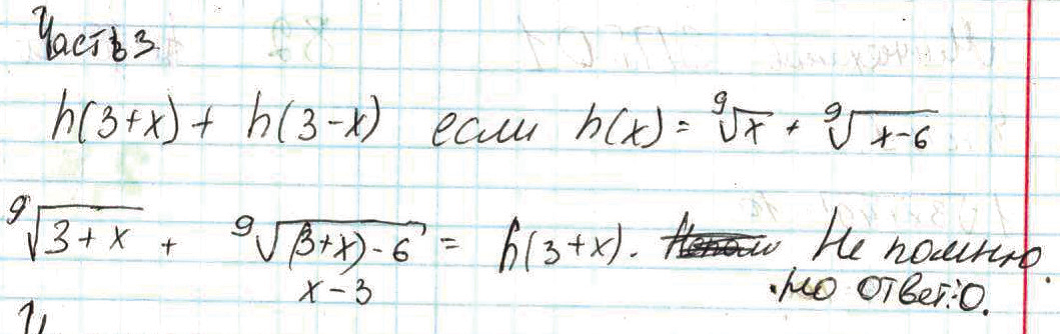 Часть 3
h(3+x) + h(3-x) если h(x) = ⁹√x + ⁹√(x-6)
⁹√(3+x) + ⁹√((3+x)-6) = h(3+x). Не помню.
x-3 но ответ: 0.